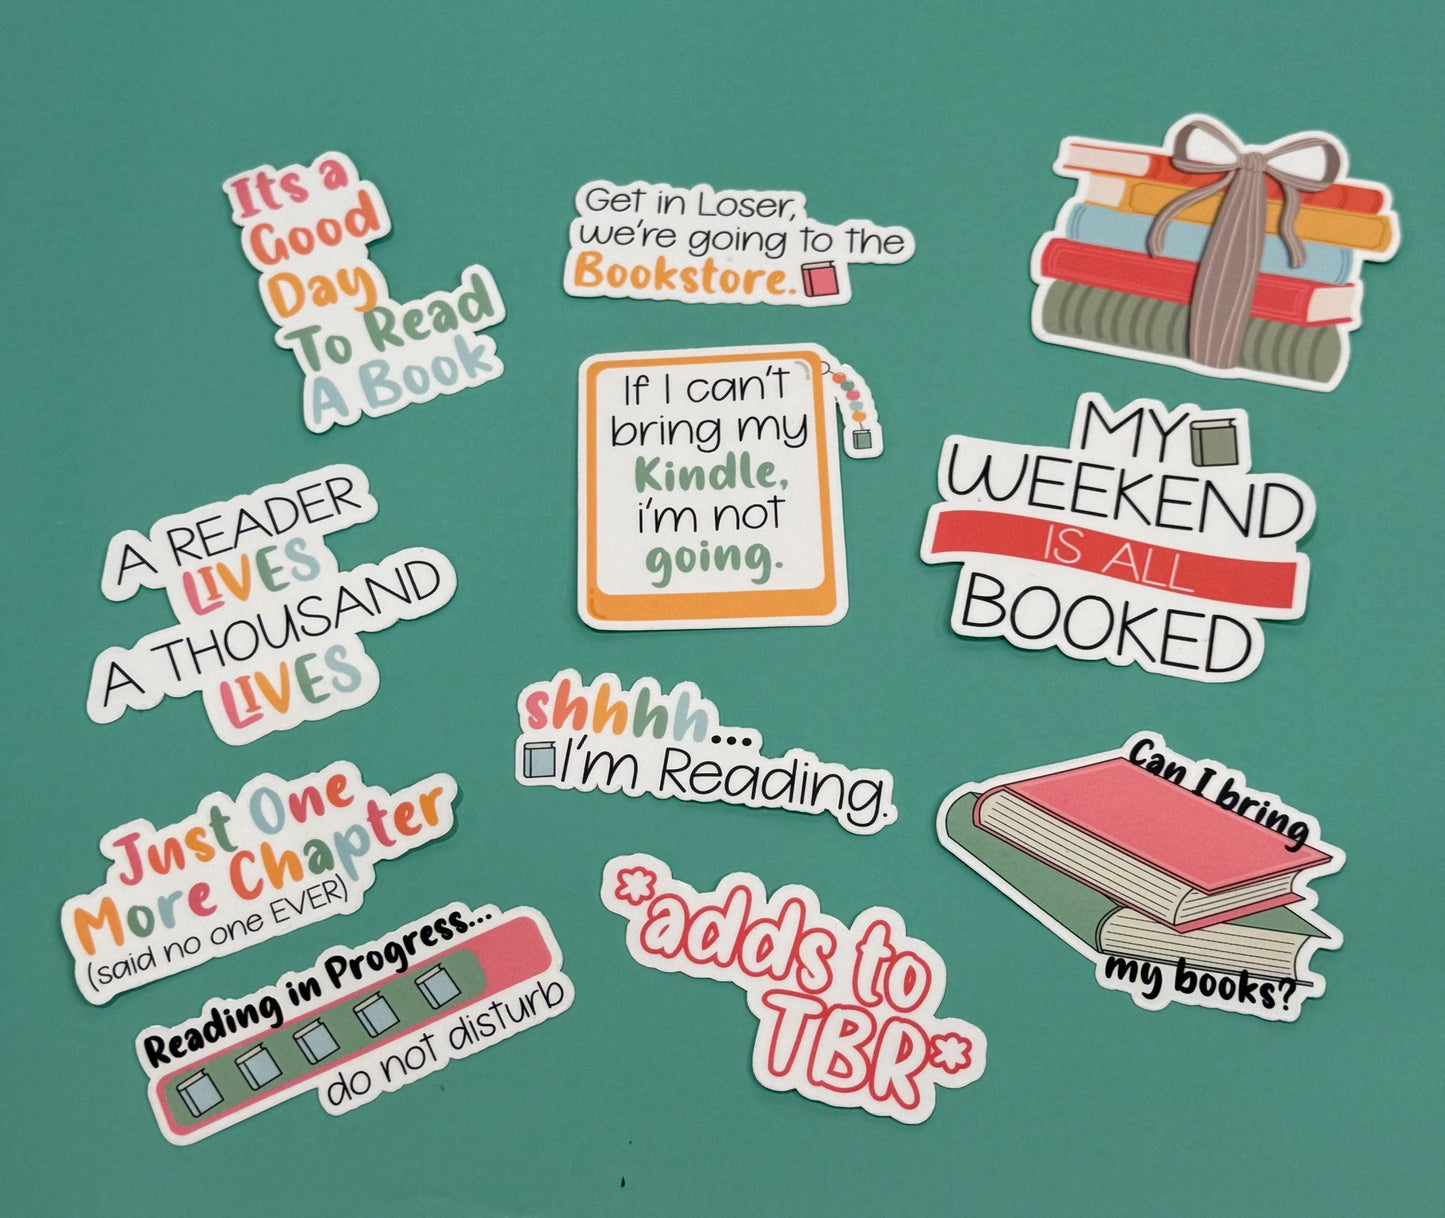 Its a
Good
Day
To Read
A Book
Get in Loser,
we're going to the
Bookstore.
If I can't
bring my
Kindle,
i'm not
going.
MY
WEEKEND
IS ALL
BOOKED
A READER
LIVES
A THOUSAND
LIVES
shhhh...
I'm Reading.
Just One
More Chapter
(said no one EVER)
Reading in Progress...
do not disturb
*adds to
TBR*
Can I bring
my books?